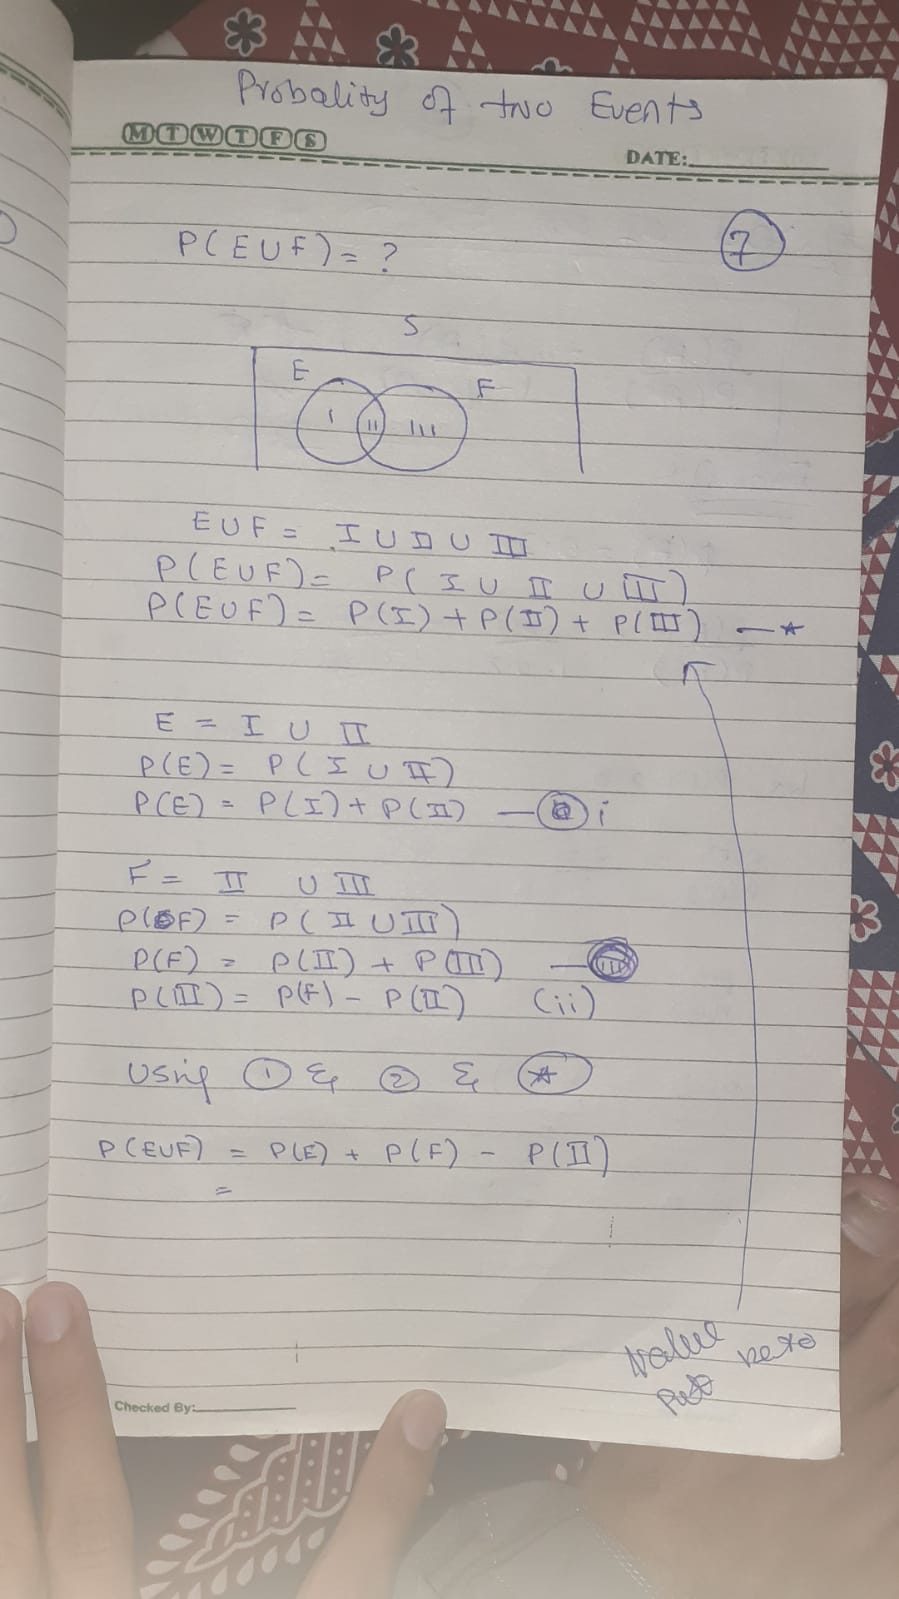 Probality of two Events
M T W T F S
DATE:
P(EUF) = ?
7
S
E
F
I II III
EUF = I U II U III
P(EUF) = P( I U II U III )
P(EUF) = P(I) + P(II) + P(III) — *
E = I U II
P(E) = P( I U II )
P(E) = P(I) + P(II) — i
F = II U III
P(F) = P( II U III )
P(F) = P(II) + P(III) —
P(III) = P(F) - P(II) (ii)
Using ① & ② & *
P(EUF) = P(E) + P(F) - P(II)
=
Value
put
Checked By: